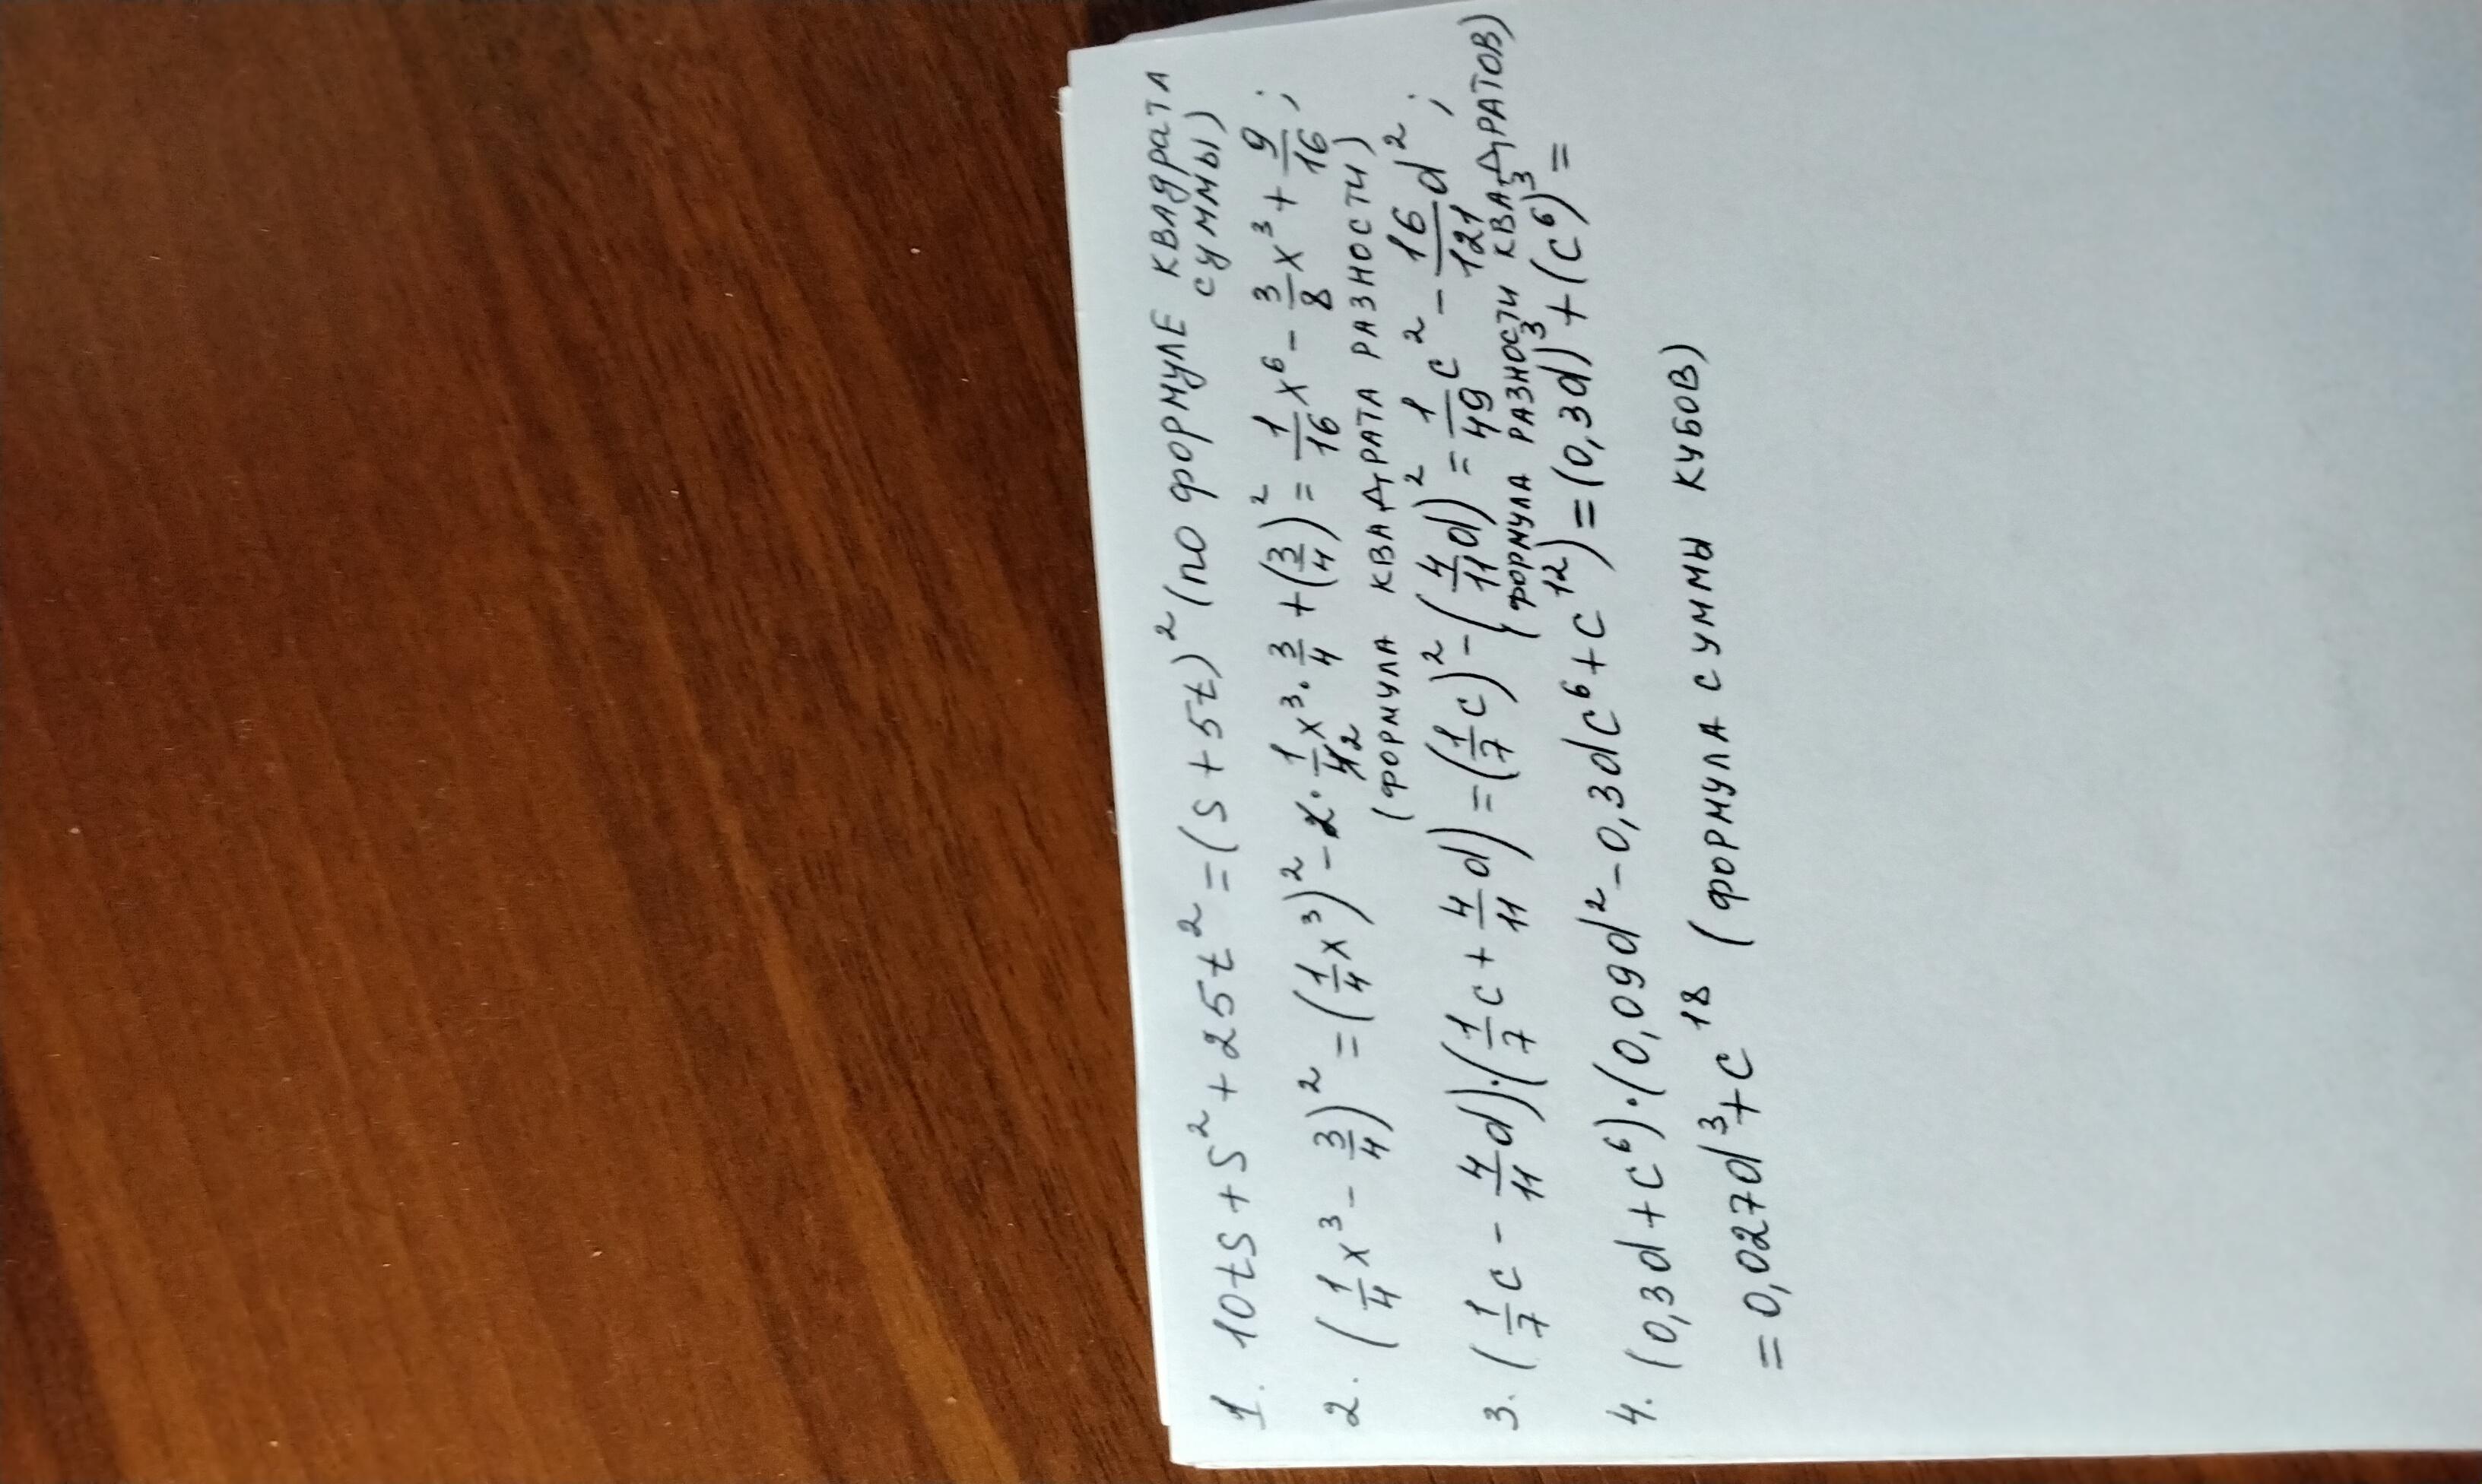 1. 10ts + s² + 25t² = (s + 5t)² (по формуле квадрата
суммы)
2. (1/4 x³ - 3/4)² = (1/4 x³)² - 2 · 1/4 x³ · 3/4 + (3/4)² = 1/16 x⁶ - 3/8 x³ + 9/16 ;
2
(формула квадрата разности)
3. (1/7 c - 4/11 d) · (1/7 c + 4/11 d) = (1/7 c)² - (4/11 d)² = 1/49 c² - 16/121 d² ;
(формула разности квадратов)
4. (0,3d + c⁶) · (0,09d² - 0,3dc⁶ + c¹²) = (0,3d)³ + (c⁶)³ =
= 0,027d³ + c¹⁸ (формула суммы кубов)